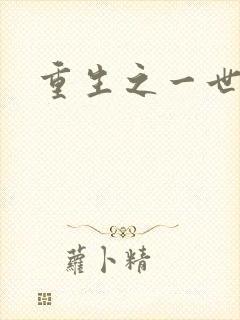 重生之一世
蘿卜精